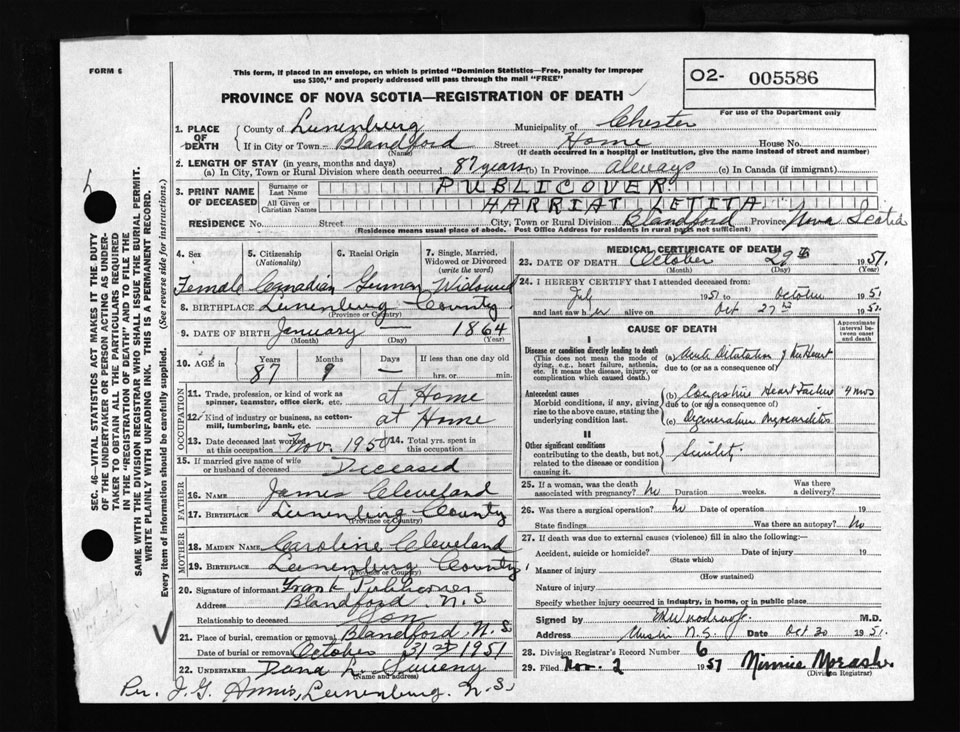 FORM 6
This form, if placed in an envelope, on which is printed "Dominion Statistics—Free, penalty for improper
use $300," and properly addressed will pass through the mail "FREE"
O2- 005586
PROVINCE OF NOVA SCOTIA—REGISTRATION OF DEATH
For use of the Department only
1. PLACE OF DEATH
County of Lunenburg Municipality of Chester
If in City or Town Blandford Street Home House No.
(Name) (If death occurred in a hospital or institution, give the name instead of street and number)
2. LENGTH OF STAY (in years, months and days)
(a) In City, Town or Rural Division where death occurred 87 years (b) In Province always (c) In Canada (if immigrant)
3. PRINT NAME OF DECEASED
Surname or Last Name PUBLICOVER
All Given or Christian Names HARRIAT LETITA
RESIDENCE No. Street City, Town or Rural Division Blandford Province Nova Scotia
(Residence means usual place of abode. Post Office Address for residents in rural parts not sufficient)
4. Sex 5. Citizenship (Nationality) 6. Racial Origin 7. Single, Married, Widowed or Divorced (write the word)
Female Canadian German Widowed
8. BIRTHPLACE Lunenburg County
(Province or Country)
9. DATE OF BIRTH January — 1864
(Month) (Day) (Year)
10. AGE in Years Months Days If less than one day old
87 9 — hrs. or min.
OCCUPATION
11. Trade, profession, or kind of work as spinner, teamster, office clerk, etc. at Home
12. Kind of industry or business, as cotton-mill, lumbering, bank, etc. at Home
13. Date deceased last worked at this occupation Nov. 1950 14. Total yrs. spent in this occupation
15. If married give name of wife or husband of deceased Deceased
FATHER
16. NAME James Cleveland
17. BIRTHPLACE Lunenburg County
(Province or Country)
MOTHER
18. MAIDEN NAME Caroline Cleveland
19. BIRTHPLACE Lunenburg County
(Province or Country)
20. Signature of informant Frank Publicover
Address Blandford N.S.
Relationship to deceased Son
21. Place of burial, cremation or removal Blandford, N.S
Date of burial or removal October 31st 1951
22. UNDERTAKER Dana L. Sweeny
(Name and address)
Per. J.G. Lunenburg. N.S,
MEDICAL CERTIFICATE OF DEATH
23. DATE OF DEATH October 29th 1951.
(Month) (Day) (Year)
24. I HEREBY CERTIFY that I attended deceased from:
July 1951 to October 1951
and last saw her alive on Oct 27th 1951.
CAUSE OF DEATH
Approximate interval between onset and death
I
Disease or condition directly leading to death (a) Acute Dilatation of the Heart
(This does not mean the mode of dying, e.g., heart failure, asthenia, etc. It means the disease, injury, or complication which caused death.)
due to (or as a consequence of)
Antecedent causes (b) Congestive Heart Failure 4 mos
Morbid conditions, if any, giving rise to the above cause, stating the underlying condition last.
due to (or as a consequence of)
(c) Degenerative Myocarditis
II
Other significant conditions contributing to the death, but not related to the disease or condition causing it. Senility
25. If a woman, was the death associated with pregnancy? No Duration weeks. Was there a delivery?
26. Was there a surgical operation? No Date of operation 19
State findings Was there an autopsy? No
27. If death was due to external causes (violence) fill in also the following:—
Accident, suicide or homicide? Date of injury 19
(State which)
Manner of injury
(How sustained)
Nature of injury
Specify whether injury occurred in industry, in home, or in public place
Signed by M.D.
Address N.S. Date Oct 30 1951.
28. Division Registrar's Record Number 6
29. Filed Nov. 2 1951 Minnie Morash
(Division Registrar)
SEC. 46—VITAL STATISTICS ACT MAKES IT THE DUTY
OF THE UNDERTAKER OR PERSON ACTING AS UNDERTAKER
TO OBTAIN ALL THE PARTICULARS REQUIRED
IN THE "REGISTRATION OF DEATH" AND TO FILE THE
SAME WITH THE DIVISION REGISTRAR WHO SHALL ISSUE THE BURIAL PERMIT.
WRITE PLAINLY WITH UNFADING INK. THIS IS A PERMANENT RECORD.
Every item of information should be carefully supplied. (See reverse side for instructions.)